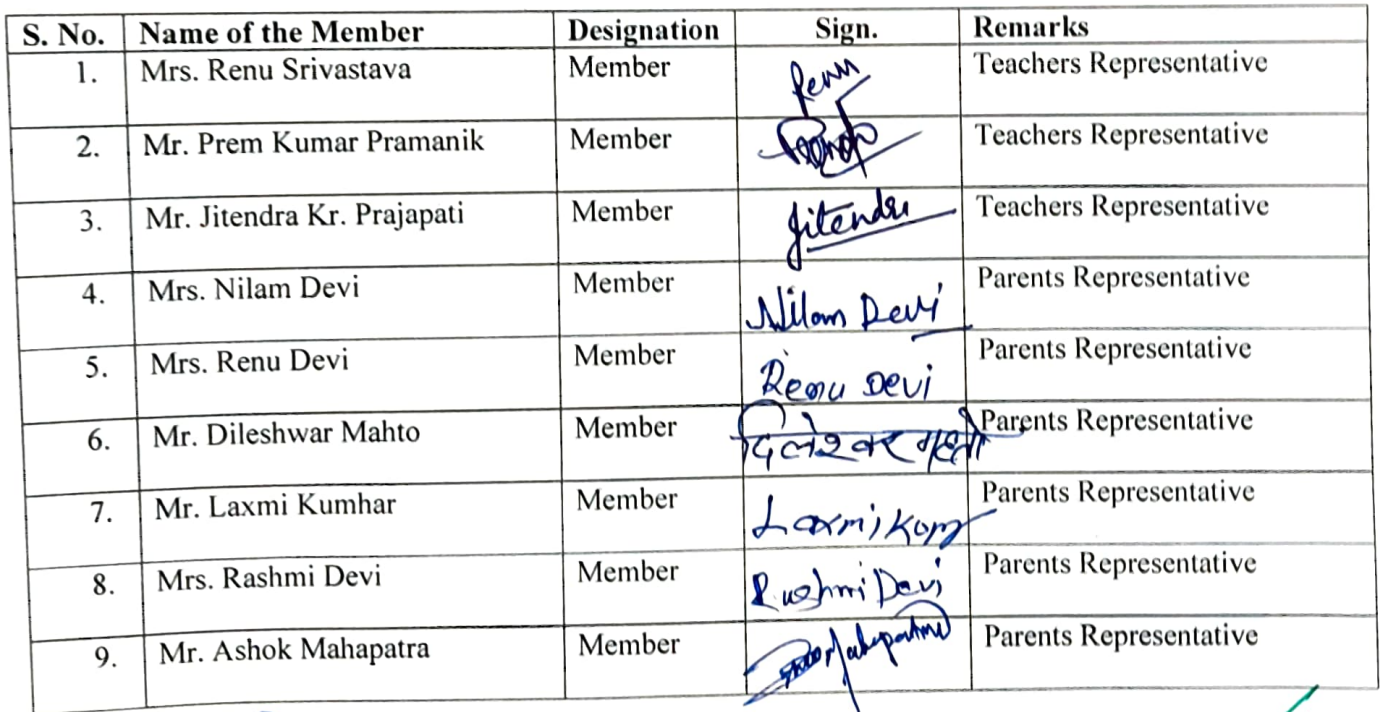 S. No. Name of the Member Designation Sign. Remarks
1. Mrs. Renu Srivastava Member Renu Teachers Representative
2. Mr. Prem Kumar Pramanik Member Teachers Representative
3. Mr. Jitendra Kr. Prajapati Member Jitendra Teachers Representative
4. Mrs. Nilam Devi Member Nilam Devi Parents Representative
5. Mrs. Renu Devi Member Renu Devi Parents Representative
6. Mr. Dileshwar Mahto Member दिलेश्वर महतो Parents Representative
7. Mr. Laxmi Kumhar Member Laxmi Parents Representative
8. Mrs. Rashmi Devi Member Rashmi Devi Parents Representative
9. Mr. Ashok Mahapatra Member Parents Representative